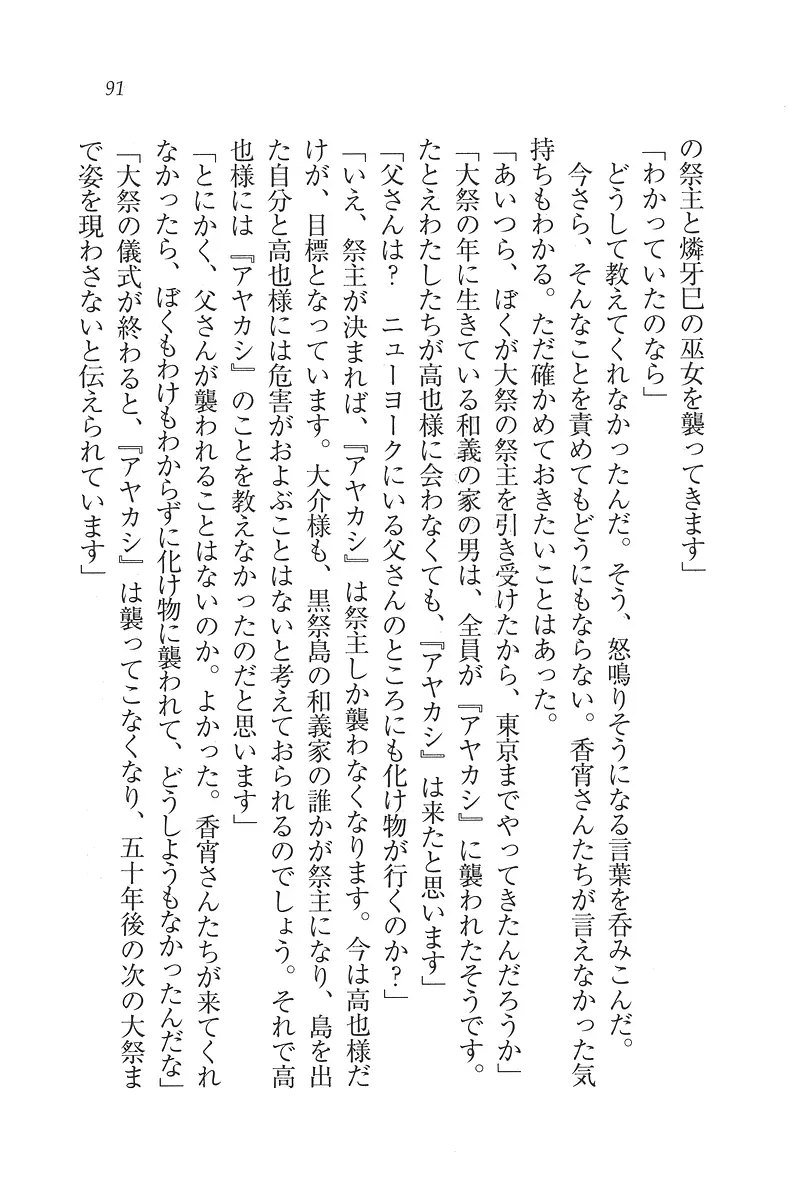 91
の祭主と燐牙巳の巫女を襲ってきます」
「わかっていたのなら」
　どうして教えてくれなかったんだ。そう、怒鳴りそうになる言葉を呑みこんだ。
　今さら、そんなことを責めてもどうにもならない。香宵さんたちが言えなかった気
持ちもわかる。ただ確かめておきたいことはあった。
「あいつら、ぼくが大祭の祭主を引き受けたから、東京までやってきたんだろうか」
「大祭の年に生きている和義の家の男は、全員が『アヤカシ』に襲われたそうです。
たとえわたしたちが高也様に会わなくても、『アヤカシ』は来たと思います」
「父さんは？　ニューヨークにいる父さんのところにも化け物が行くのか？」
「いえ、祭主が決まれば、『アヤカシ』は祭主しか襲わなくなります。今は高也様だ
けが、目標となっています。大介様も、黒祭島の和義家の誰かが祭主になり、島を出
た自分と高也様には危害がおよぶことはないと考えておられるのでしょう。それで高
也様には『アヤカシ』のことを教えなかったのだと思います」
「とにかく、父さんが襲われることはないのか。よかった。香宵さんたちが来てくれ
なかったら、ぼくもわけもわからずに化け物に襲われて、どうしようもなかったんだな」
「大祭の儀式が終わると、『アヤカシ』は襲ってこなくなり、五十年後の次の大祭ま
で姿を現わさないと伝えられています」